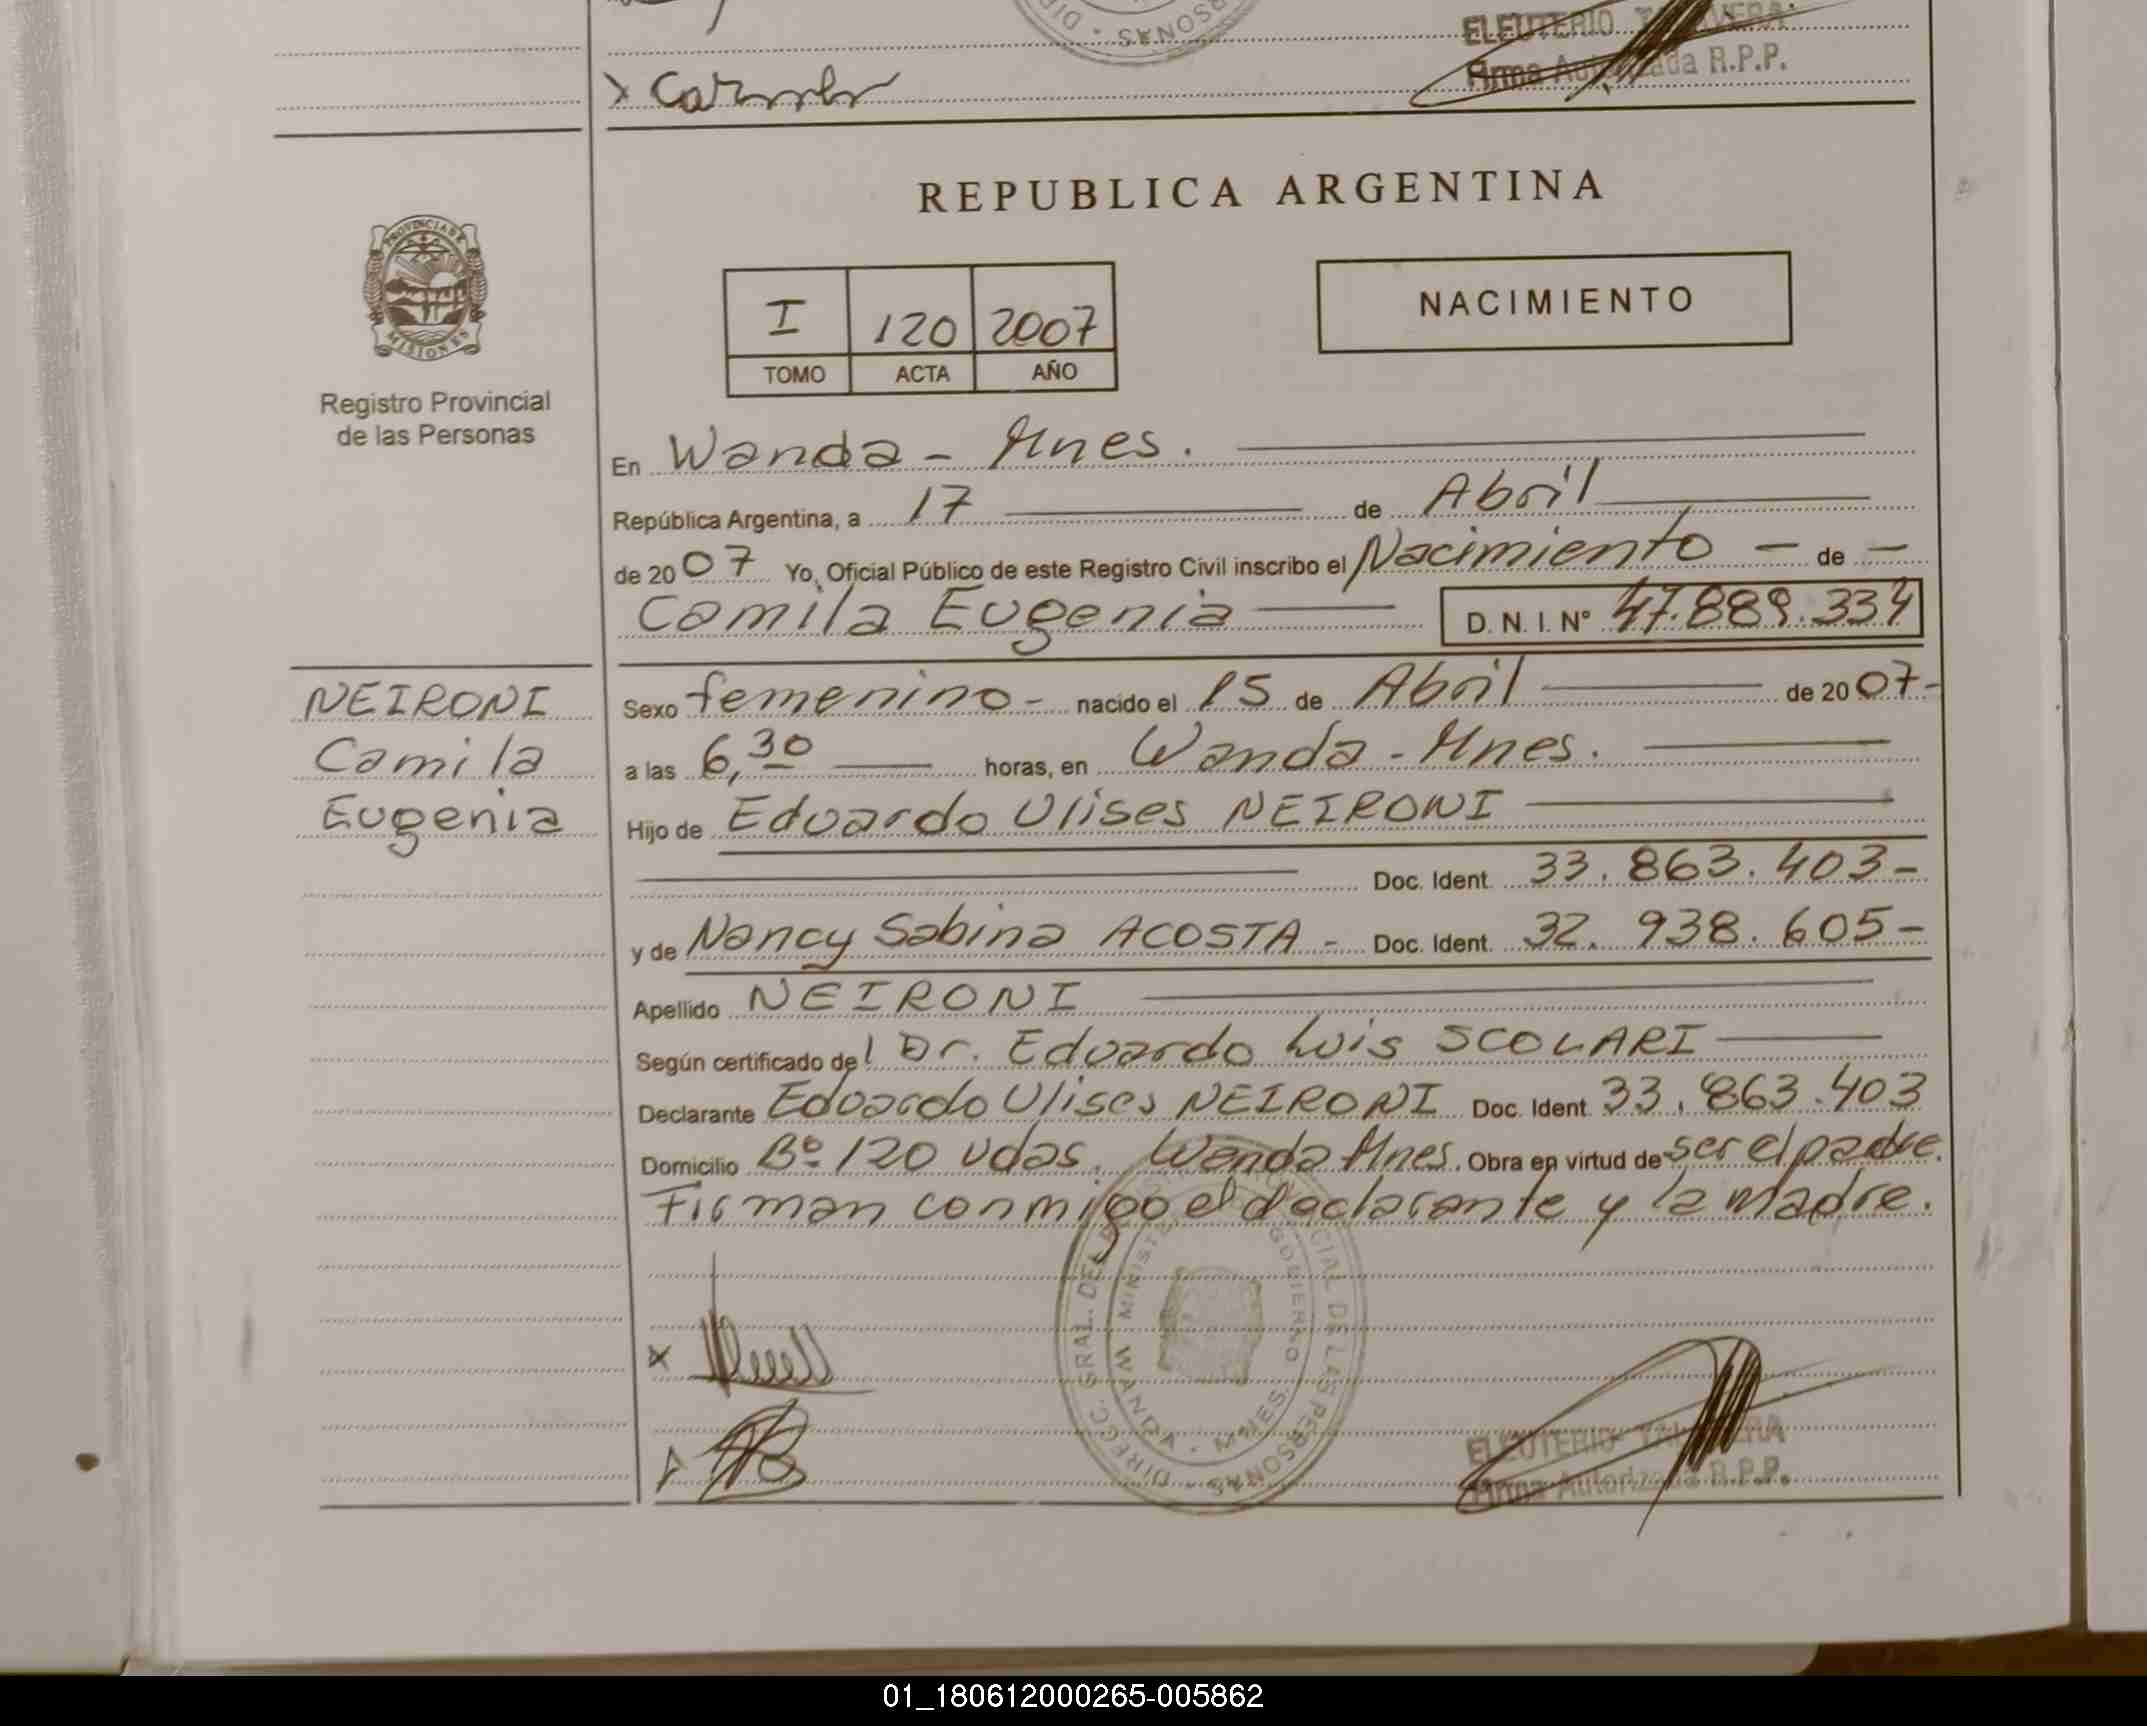 DIR SONAS
ELEUTERIO TALAVERA
Firma Autorizada R.P.P.
x
REPUBLICA ARGENTINA
PROVINCIA DE
MISIONES
Registro Provincial
de las Personas
I 120 2007
TOMO ACTA AÑO
NACIMIENTO
En Wanda - Mnes.
República Argentina, a 17 de Abril
de 2007 Yo, Oficial Público de este Registro Civil inscribo el Nacimiento - de -
Camila Eugenia D. N. I. Nº 47.889.334
NEIRONI
Camila
Eugenia
Sexo femenino - nacido el 15 de Abril de 2007-
a las 6,30 horas, en Wanda - Mnes.
Hijo de Eduardo Ulises NEIRONI
Doc. Ident. 33.863.403-
y de Nancy Sabina ACOSTA - Doc. Ident. 32.938.605-
Apellido NEIRONI
Según certificado del Dr. Eduardo Luis SCOLARI
Declarante Eduardo Ulises NEIRONI Doc. Ident. 33.863.403
Domicilio Bº 120 Vdas. Wanda Mnes. Obra en virtud de ser el padre.
Firman conmigo el declarante y la madre.
x
DIRECC. GRAL. DEL CIAL DE LAS PERSONAS
MINISTE GOBIERNO
WANDA - MNES.
ELEUTERIO TALAVERA
Firma Autorizada R.P.P.
01_180612000265-005862